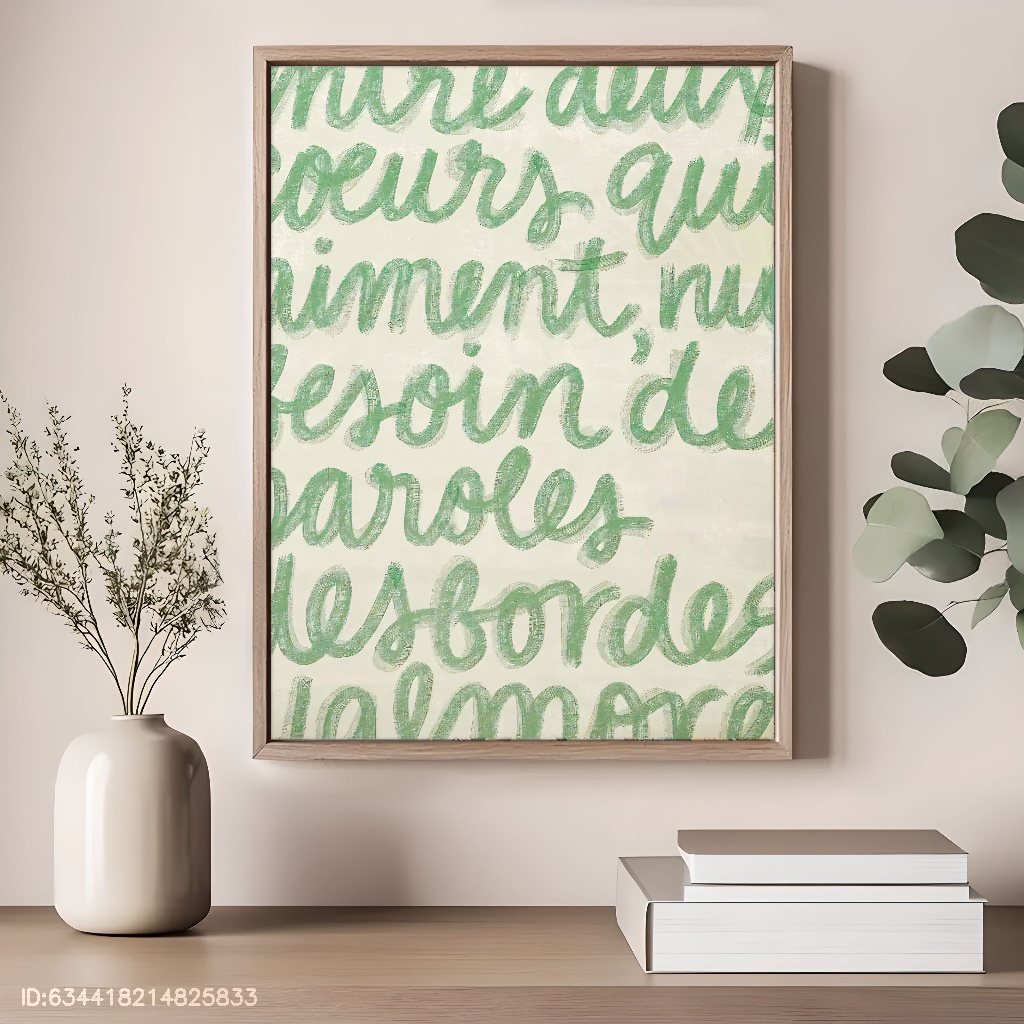 ntre deux
coeurs qui
aiment, nu
besoin de
paroles
desbordes
valmore
ID:634418214825833